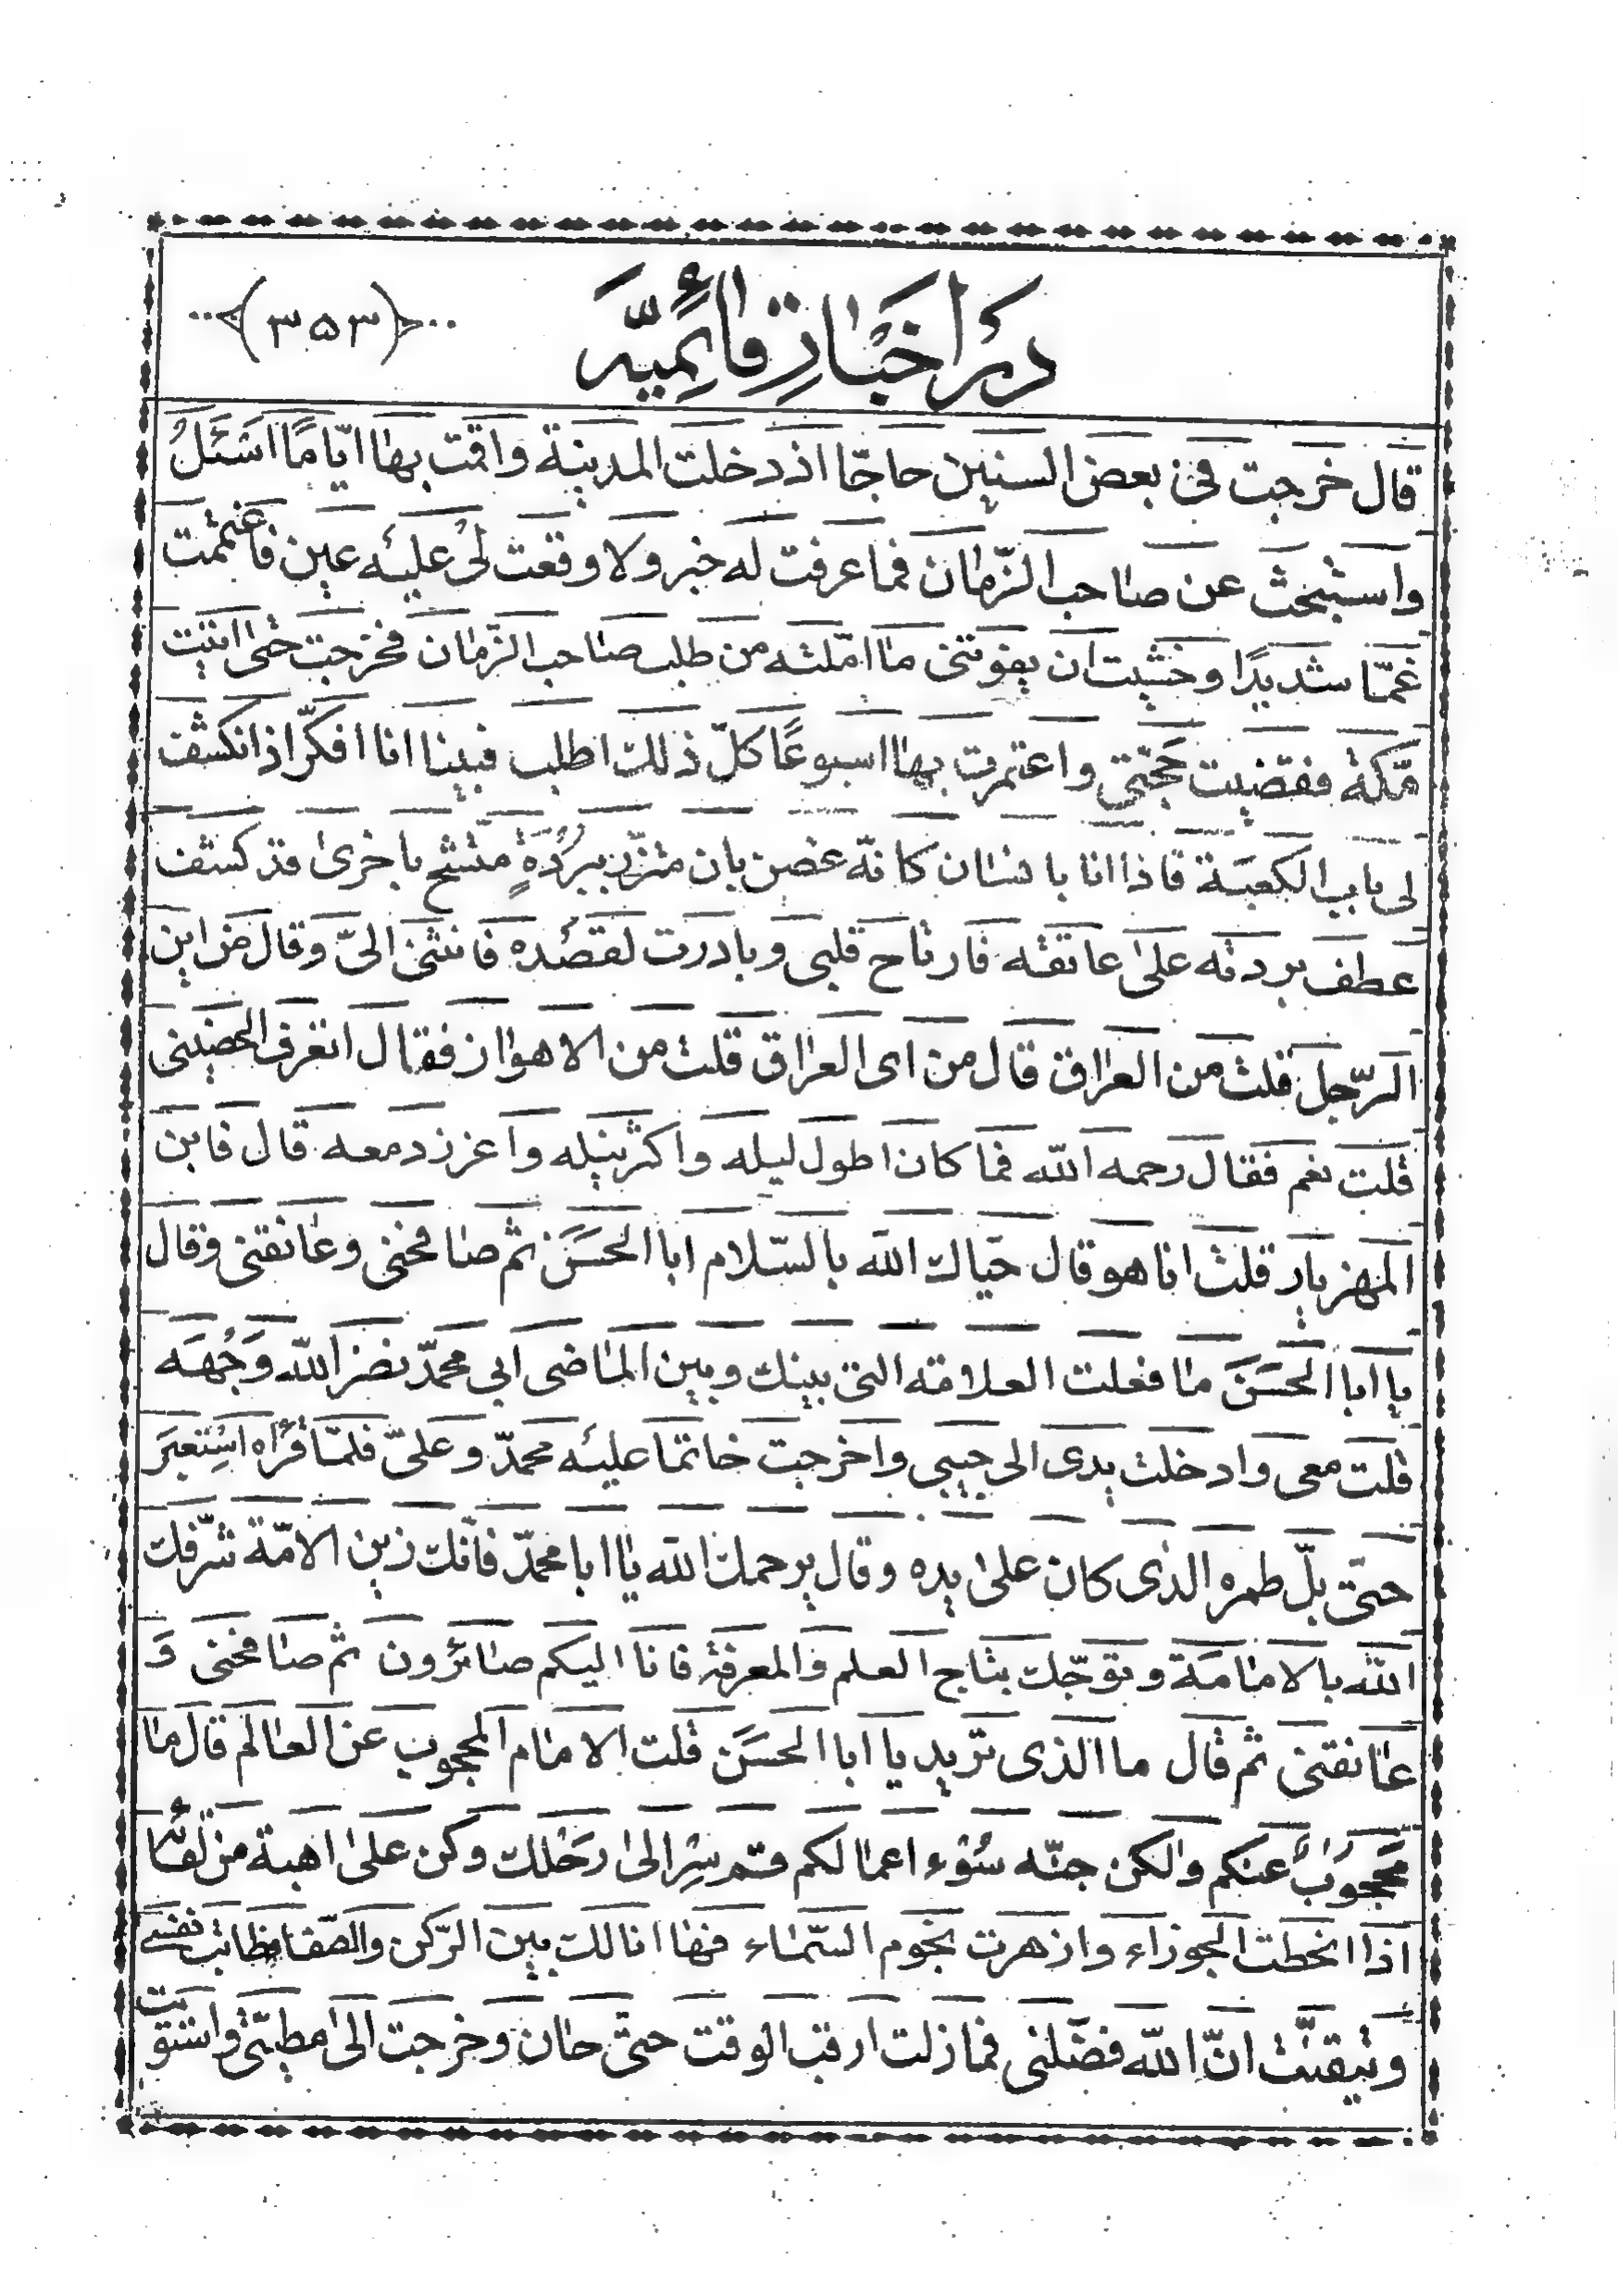 در اخبار قائمیّه
(۳۵۳)
قال خرجت فی بعض السنین حاجّا اذ دخلت المدینة واقمت بها ایّامًا اسَئَلُ
واستبحث عن صاحب الزّمان فما عرفت له خبر ولا وقعت لی علیه عین فاغتممت
غمّا شدیدًا وخشیت ان یفوتنی ما املته من طلب صاحب الزمان فخرجت حتی اتیت
مکّة فقضیت حَجّتی واعتمرت بها اسبوعًا کلّ ذلک اطلب فبینا انا افکّر اذ انکشف
لی باب الکعبَة فاذا انا بانسان کانّه غصن بان متّزر ببردُةٍ متّشح باخری قد کشف
عطف بردته علی عاتقه فارتاح قلبی وبادرت لقصده فانثنی الیّ وقال من این
الرّجل قلت من العراق قال من ای العراق قلت من الاهواز فقال اتعرف الحضینی
قلت نعم فقال رحمه الله فما کان اطول لیله واکثر نیله واغزر دمعه قال فابن
المهزیار قلت انا هو قال حیّاک الله بالسّلام ابا الحسَن ثم صافحنی وعانقنی وقال
یا ابا الحسَن ما فعلت العلامة التی بینک وبین الماضی ابی محمّد نضر الله وَجْهَه
قلت معی وادخلت یدی الی جیبی واخرجت خاتما علیه محمّد وعلیّ فلمّا قرأه استعبَر
حتی بلّ طمره الذی کان علی یده وقال یرحمک الله یا ابا محمّد فانّک زین الامّة شرّفک
الله بالامامَة وتوّجک بتاج العلم والمعرفة فانا الیکم صائرون ثم صافحنی وَ
عانقنی ثم قال ما الذی ترید یا ابا الحسَن قلت الامام المحجوب عن العالم قال ما
محَجوبٌ عنکم ولکن جنّه سُوْء اعمالکم قم سِرْ الی رَحْلک وکن علی اهبة من لقائه
اذا انحطت الجوزاء وازهرت نجوم السّماء فها انا لک بین الرّکن والصّفا فطابت نفسی
وتیقنتُ انّ الله فضّلنی فما زلت ارقب الوقت حتّی حان وخرجت الی مطیّتی واستوت